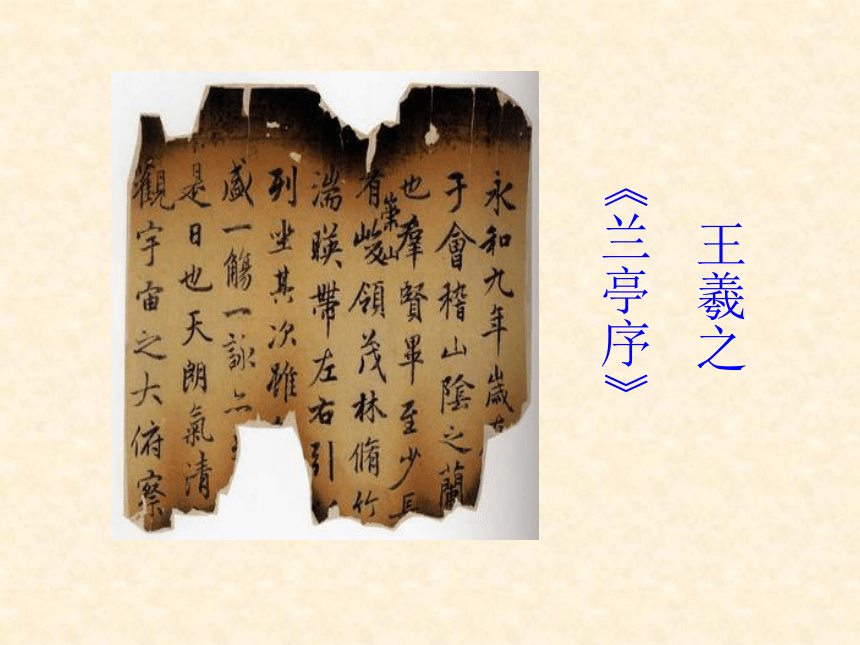 王羲之
《兰亭序》
永和九年歲在
于會稽山陰之蘭
也羣賢畢至少長
有崇山峻領茂林脩竹
湍暎帶左右引
列坐其次雖
盛一觴一詠亦
是日也天朗氣清
觀宇宙之大俯察